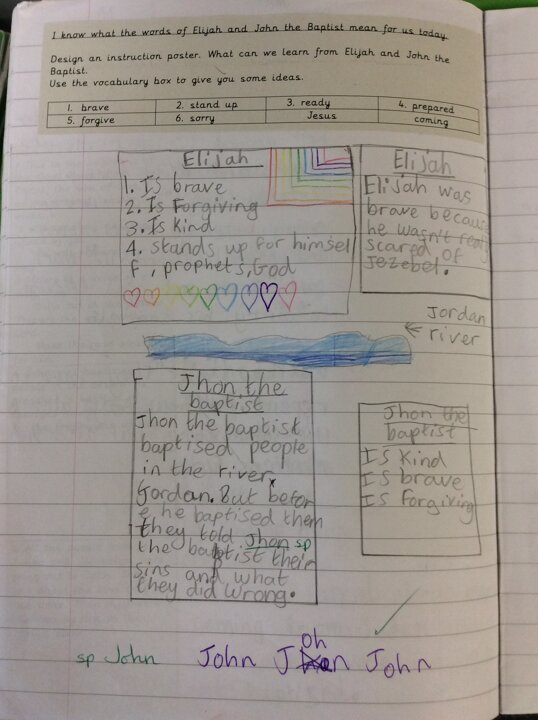 I know what the words of Elijah and John the Baptist mean for us today.
Design an instruction poster. What can we learn from Elijah and John the
Baptist.
Use the vocabulary box to give you some ideas.
1. brave 2. stand up 3. ready 4. prepared
5. forgive 6. sorry Jesus coming
Elijah
1. Is brave
2. Is Forgiving
3. Is Kind
4. Stands up for himsel
f, prophets, God
Elijah
Elijah was
brave becaus
he wasn't
scared of
Jezebel.
Jordan
river
Jhon the
baptist
Jhon the baptist
baptised people
in the river
Jordan. But befor
e he baptised them
they told Jhon sp
the baptist their
sins and what
they did wrong.
Jhon the
baptist
Is Kind
Is brave
Is forgiving
sp John John oh
J n John